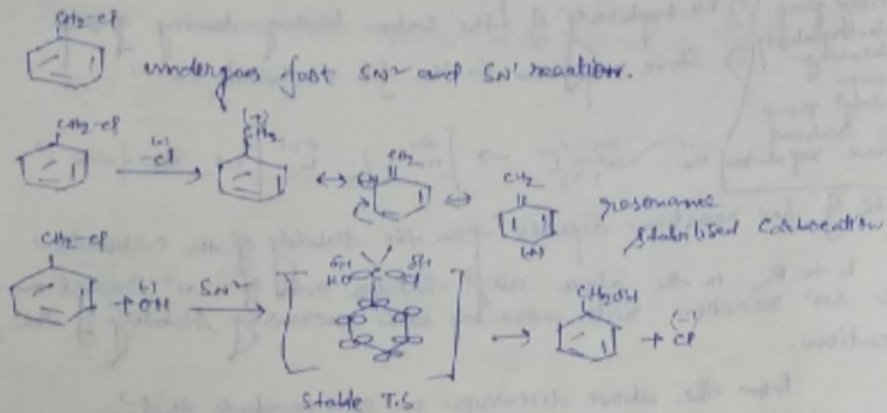 CH2-Cl
undergoes fast SN2 and SN1 reaction.
CH2-Cl
(-)
-Cl
(+)
CH2
↔ (+)
CH2
↔
CH2
(+)
resonance
stabilised Carbocation
CH2-Cl
+ (-)OH
SN2
δ(-)
HO
C
δ(-)
Cl
CH2OH
+ (-)Cl
Stable T.S
from the above